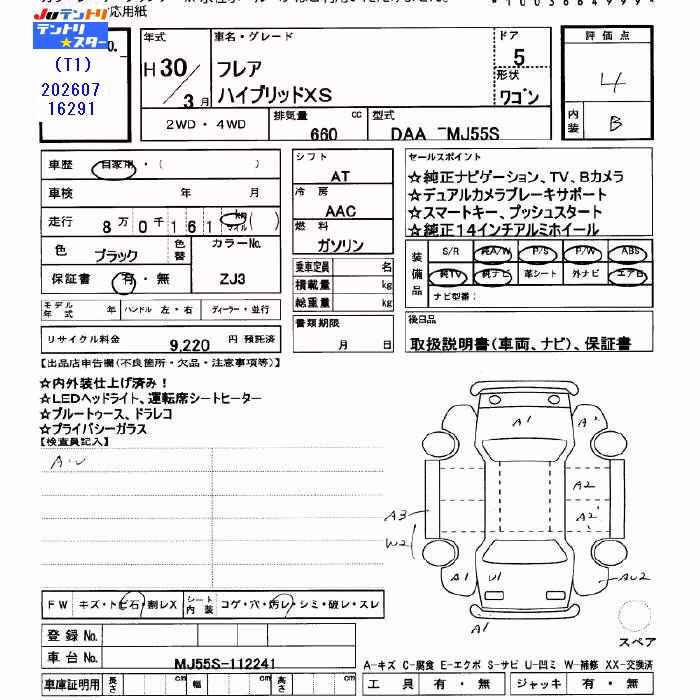 応用紙
JUテントリ
テントリ
★スター
(T1)
202607
16291
No.
年式
H30/3月
車名・グレード
フレア
ハイブリッドXS
ドア
5
形状
ワゴン
評価点
4
内装
B
2WD・4WD
排気量 660 cc
型式 DAA－MJ55S
車歴 自家用・( )
車検 年 月
走行 8万0千161 km マイル ( )
色 ブラック 色替 カラーNo. ZJ3
保証書 有・無
モデル年式 年 ハンドル 左・右 ディーラー・並行
リサイクル料金 9,220 円 預託済
シフト
AT
冷房
AAC
燃料
ガソリン
乗車定員 名
積載量 kg
総重量 kg
書類期限
月 日
セールスポイント
☆純正ナビゲーション、TV、Bカメラ
☆デュアルカメラブレーキサポート
☆スマートキー、プッシュスタート
☆純正14インチアルミホイール
装備品
S/R 純A/W P/S P/W ABS
純TV 純ナビ 革シート 外ナビ エアB
ナビ型番：
後日品
取扱説明書(車両、ナビ)、保証書
【出品店申告欄(不良箇所・欠品・注意事項等)】
☆内外装仕上げ済み！
☆LEDヘッドライト、運転席シートヒーター
☆ブルートゥース、ドラレコ
☆プライバシーガラス
【検査員記入】
A1
A2
A2
A2
A3
W2
A1
U1
AU2
A1
FW キズ・トビ石・割レX シート内装 コゲ・穴・汚レ・シミ・破レ・スレ
スペア
登録No.
車台No. MJ55S-112241
A-キズ C-腐食 E-エクボ S-サビ U-凹ミ W-補修 XX-交換済
車庫証明用 長さ cm 幅 cm 高さ cm
工具 有・無 ジャッキ 有・無